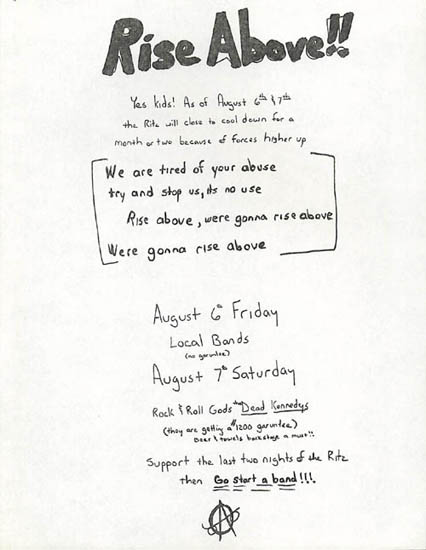 Rise Above!!
Yes kids! As of August 6th & 7th
the Ritz will close to cool down for a
month or two because of forces higher up
We are tired of your abuse
try and stop us, its no use
Rise above, were gonna rise above
Were gonna rise above
August 6th Friday
Local Bands
(no garuntee)
August 7th Saturday
Rock & Roll Gods the Dead Kennedys
(they are getting a $1200 garuntee)
Beer & towels backstage a must!!
Support the last two nights of the Ritz
then Go start a band!!!